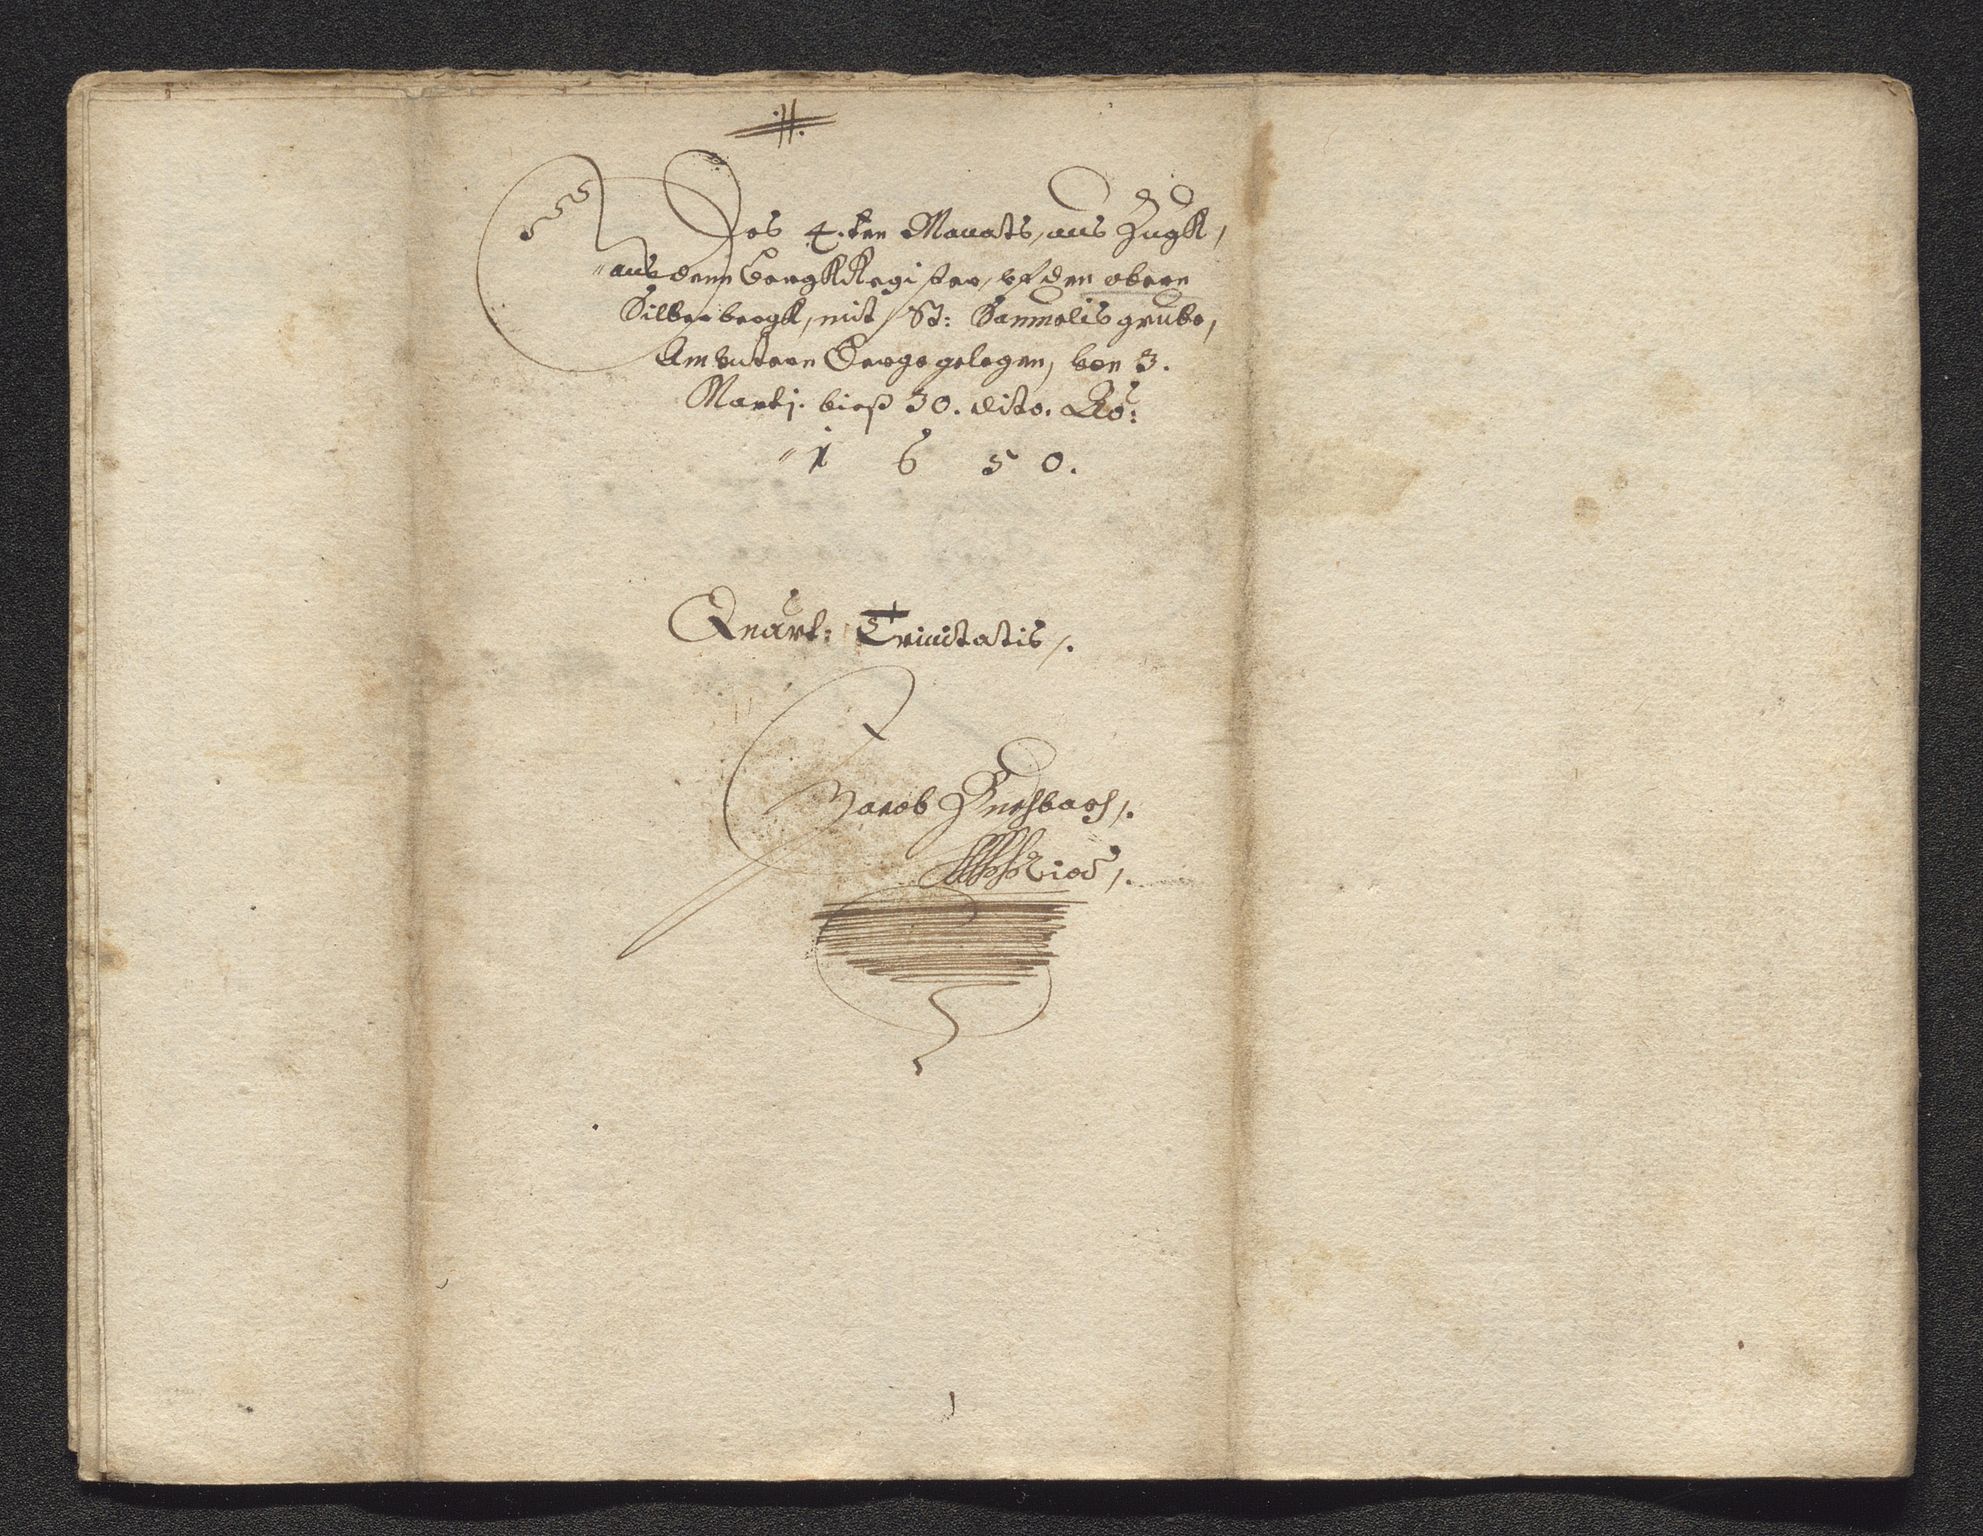 Des 4. ten Monats, aus Zugk,
aus dem BergkRegister, vf den obern
Silberbergk, mit St: Samuelis grube,
Am Vntern Berge gelegen, von 3.
Martj. bieß 30. dito. Ao:
1 6 50.
Quart: Trinitatis /.
Jacob Buchbach /.